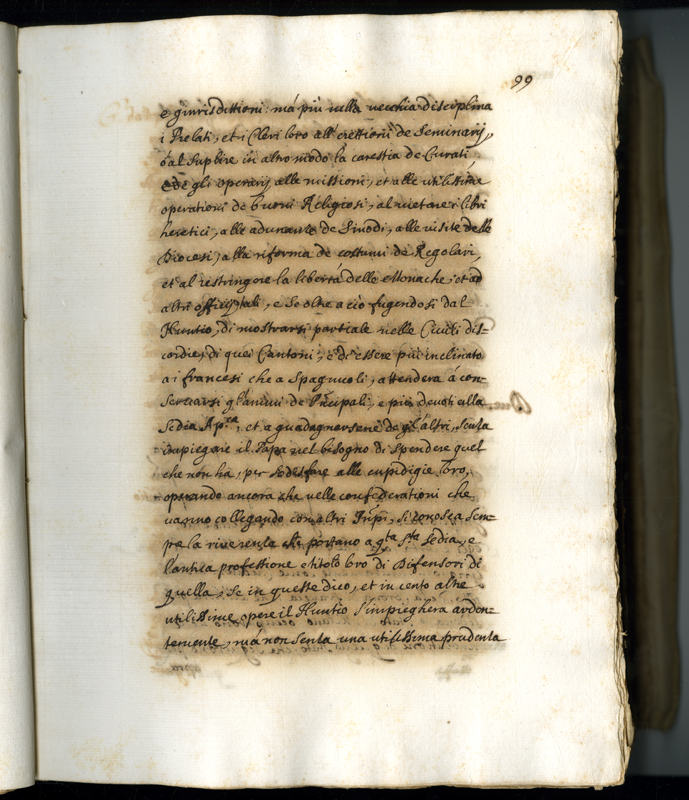 99
e giurisdittioni: má più nella vecchia disciplina
i Prelati, et i Cleri loro all' erettioni de Seminarij,
ó al suplire in altro modo la carestia de Curati
e de gli operarij alle missioni, et alle utilissime
operationi de buoni Religiosi, al vietare i libri
heretici, alle adunanze de Sinodi, alle visite delle
Diocesi, alla riforma de costumi de Regolari,
et al restringere la libertà delle Monache, et ad
altri officij tali, e se oltre a ció fugendosi dal
Nuntio, di mostrarsi partiale nelle Civili dis-
cordie, di quei Cantoni, e di essere piú inclinato
a i francesi che a Spagnuoli, attenderá á con-
servarsi gl'animi de Pncipali, e piú devoti alla
Sedia Ap.ca, et a guadagnarsene de gl'altri, senza
impiegare il Papa nel bisogno di spendere quel
che non ha, per sodisfare alle cupidigie loro,
operando ancora che nelle confederationi che
vanno collegando con altri Pnpi, si conosca sem-
pre la riverenza che portano a qta Sta Sedia, e
l'antica professione e titolo loro di Difensori di
quella, se in queste dico, et in cento altre
utilissime opere il Nuntio s'impiegherà arden-
temente, má non senza una utilissima prudenza